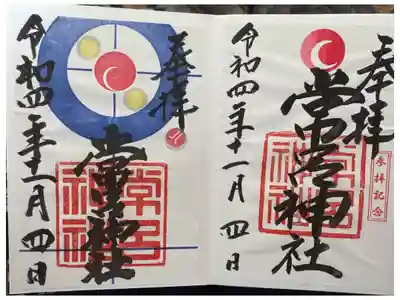 奉拝
参拝記念
常呂神社
常呂神社
令和四年十一月四日
奉拝
常呂神社
常呂神社
令和四年十一月四日